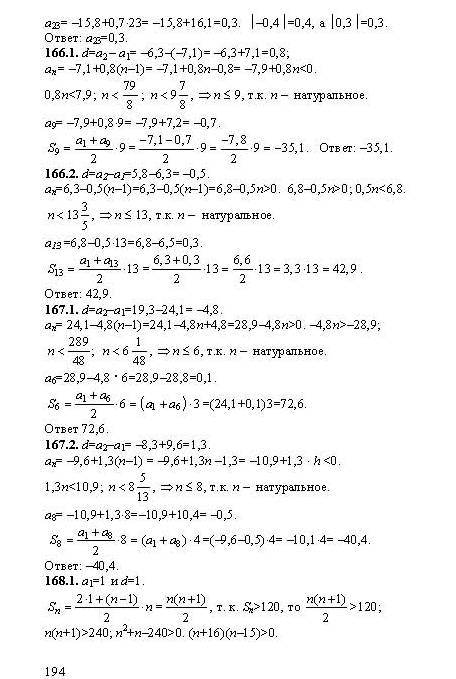 a₂₃= –15,8+0,7·23= –15,8+16,1=0,3. |–0,4|=0,4, а |0,3|=0,3.
Ответ: a₂₃=0,3.
166.1. d=a₂– a₁= –6,3–(–7,1)= –6,3+7,1=0,8;
aₙ= –7,1+0,8(n–1)= –7,1+0,8n–0,8= –7,9+0,8n<0.
0,8n<7,9; n < 79/8 ; n < 9 7/8 , ⇒ n ≤ 9, т.к. n – натуральное.
a₉= –7,9+0,8·9= –7,9+7,2= –0,7.
S₉ = (a₁ + a₉)/2 ·9 = (–7,1 – 0,7)/2 ·9 = (–7,8)/2 ·9 = –35,1. Ответ: –35,1.
166.2. d=a₂–a₁=5,8–6,3= –0,5.
aₙ=6,3–0,5(n–1)=6,3–0,5(n–1)=6,8–0,5n>0. 6,8–0,5n>0; 0,5n<6,8.
n < 13 3/5 , ⇒ n ≤ 13, т.к. n – натуральное.
a₁₃=6,8–0,5·13=6,8–6,5=0,3.
S₁₃ = (a₁ + a₁₃)/2 ·13 = (6,3 + 0,3)/2 ·13 = 6,6/2 ·13 = 3,3·13 = 42,9 .
Ответ: 42,9.
167.1. d=a₂–a₁=19,3–24,1= –4,8.
aₙ= 24,1–4,8(n–1)=24,1–4,8n+4,8=28,9–4,8n>0. –4,8n>–28,9;
n < 289/48 ; n < 6 1/48 , ⇒ n ≤ 6, т.к. n – натуральное.
a₆=28,9–4,8 · 6=28,9–28,8=0,1.
S₆ = (a₁ + a₆)/2 ·6 = (a₁ + a₆)·3 =(24,1+0,1)3=72,6.
Ответ 72,6.
167.2. d=a₂–a₁= –8,3+9,6=1,3.
aₙ= –9,6+1,3(n–1) = –9,6+1,3n –1,3= –10,9+1,3 · h <0.
1,3n<10,9; n < 8 5/13 , ⇒ n ≤ 8, т.к. n – натуральное.
a₈= –10,9+1,3·8= –10,9+10,4= –0,5.
S₈ = (a₁ + a₈)/2 ·8 = (a₁ + a₈)·4 =(–9,6–0,5)·4= –10,1·4= –40,4.
Ответ: –40,4.
168.1. a₁=1 и d=1.
Sₙ = (2·1 + (n – 1))/2 ·n = n(n + 1)/2 , т. к. Sₙ>120, то n(n + 1)/2 >120;
n(n+1)>240; n²+n–240>0. (n+16)(n–15)>0.
194